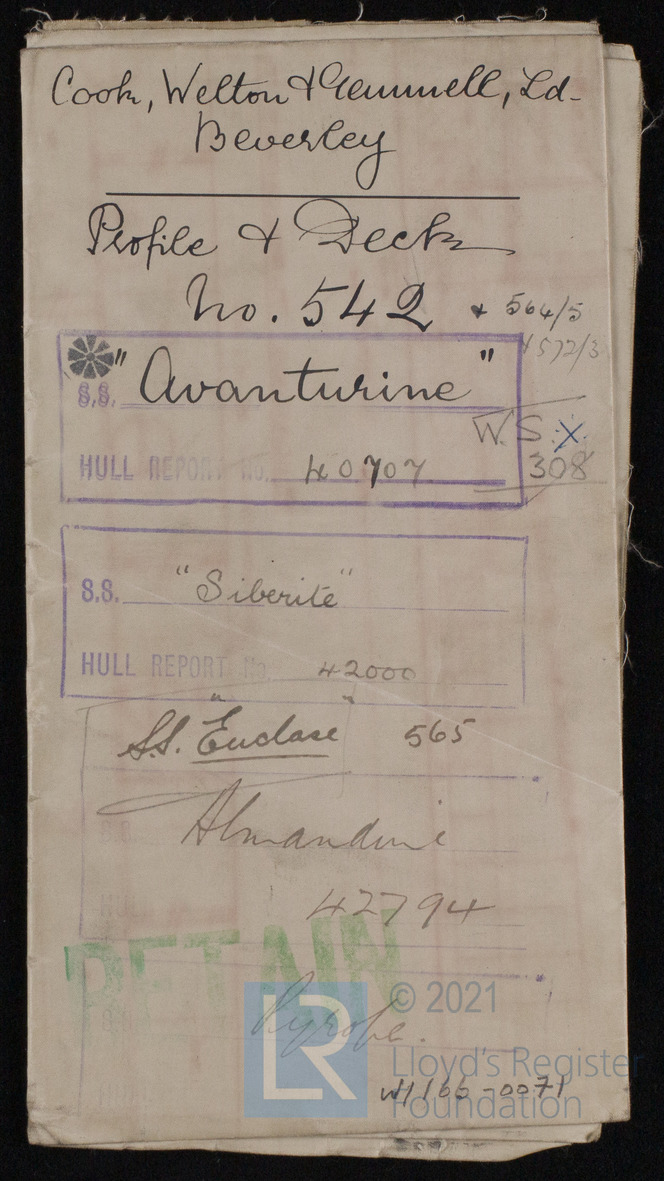 Cook, Welton & Gemmell, Ld.
Beverley
Profile & Deck
No. 542 & 564/5
+ 572/3
S.S. "Avanturine"
W.S. X
HULL REPORT No. 40707 308
S.S. "Siberite"
HULL REPORT No. 42000
S.S. "Euclase" 565
Almandine
42794
RETAIN
Pyrope.
LR
© 2021
Lloyd's Register
Foundation
W1166-0071